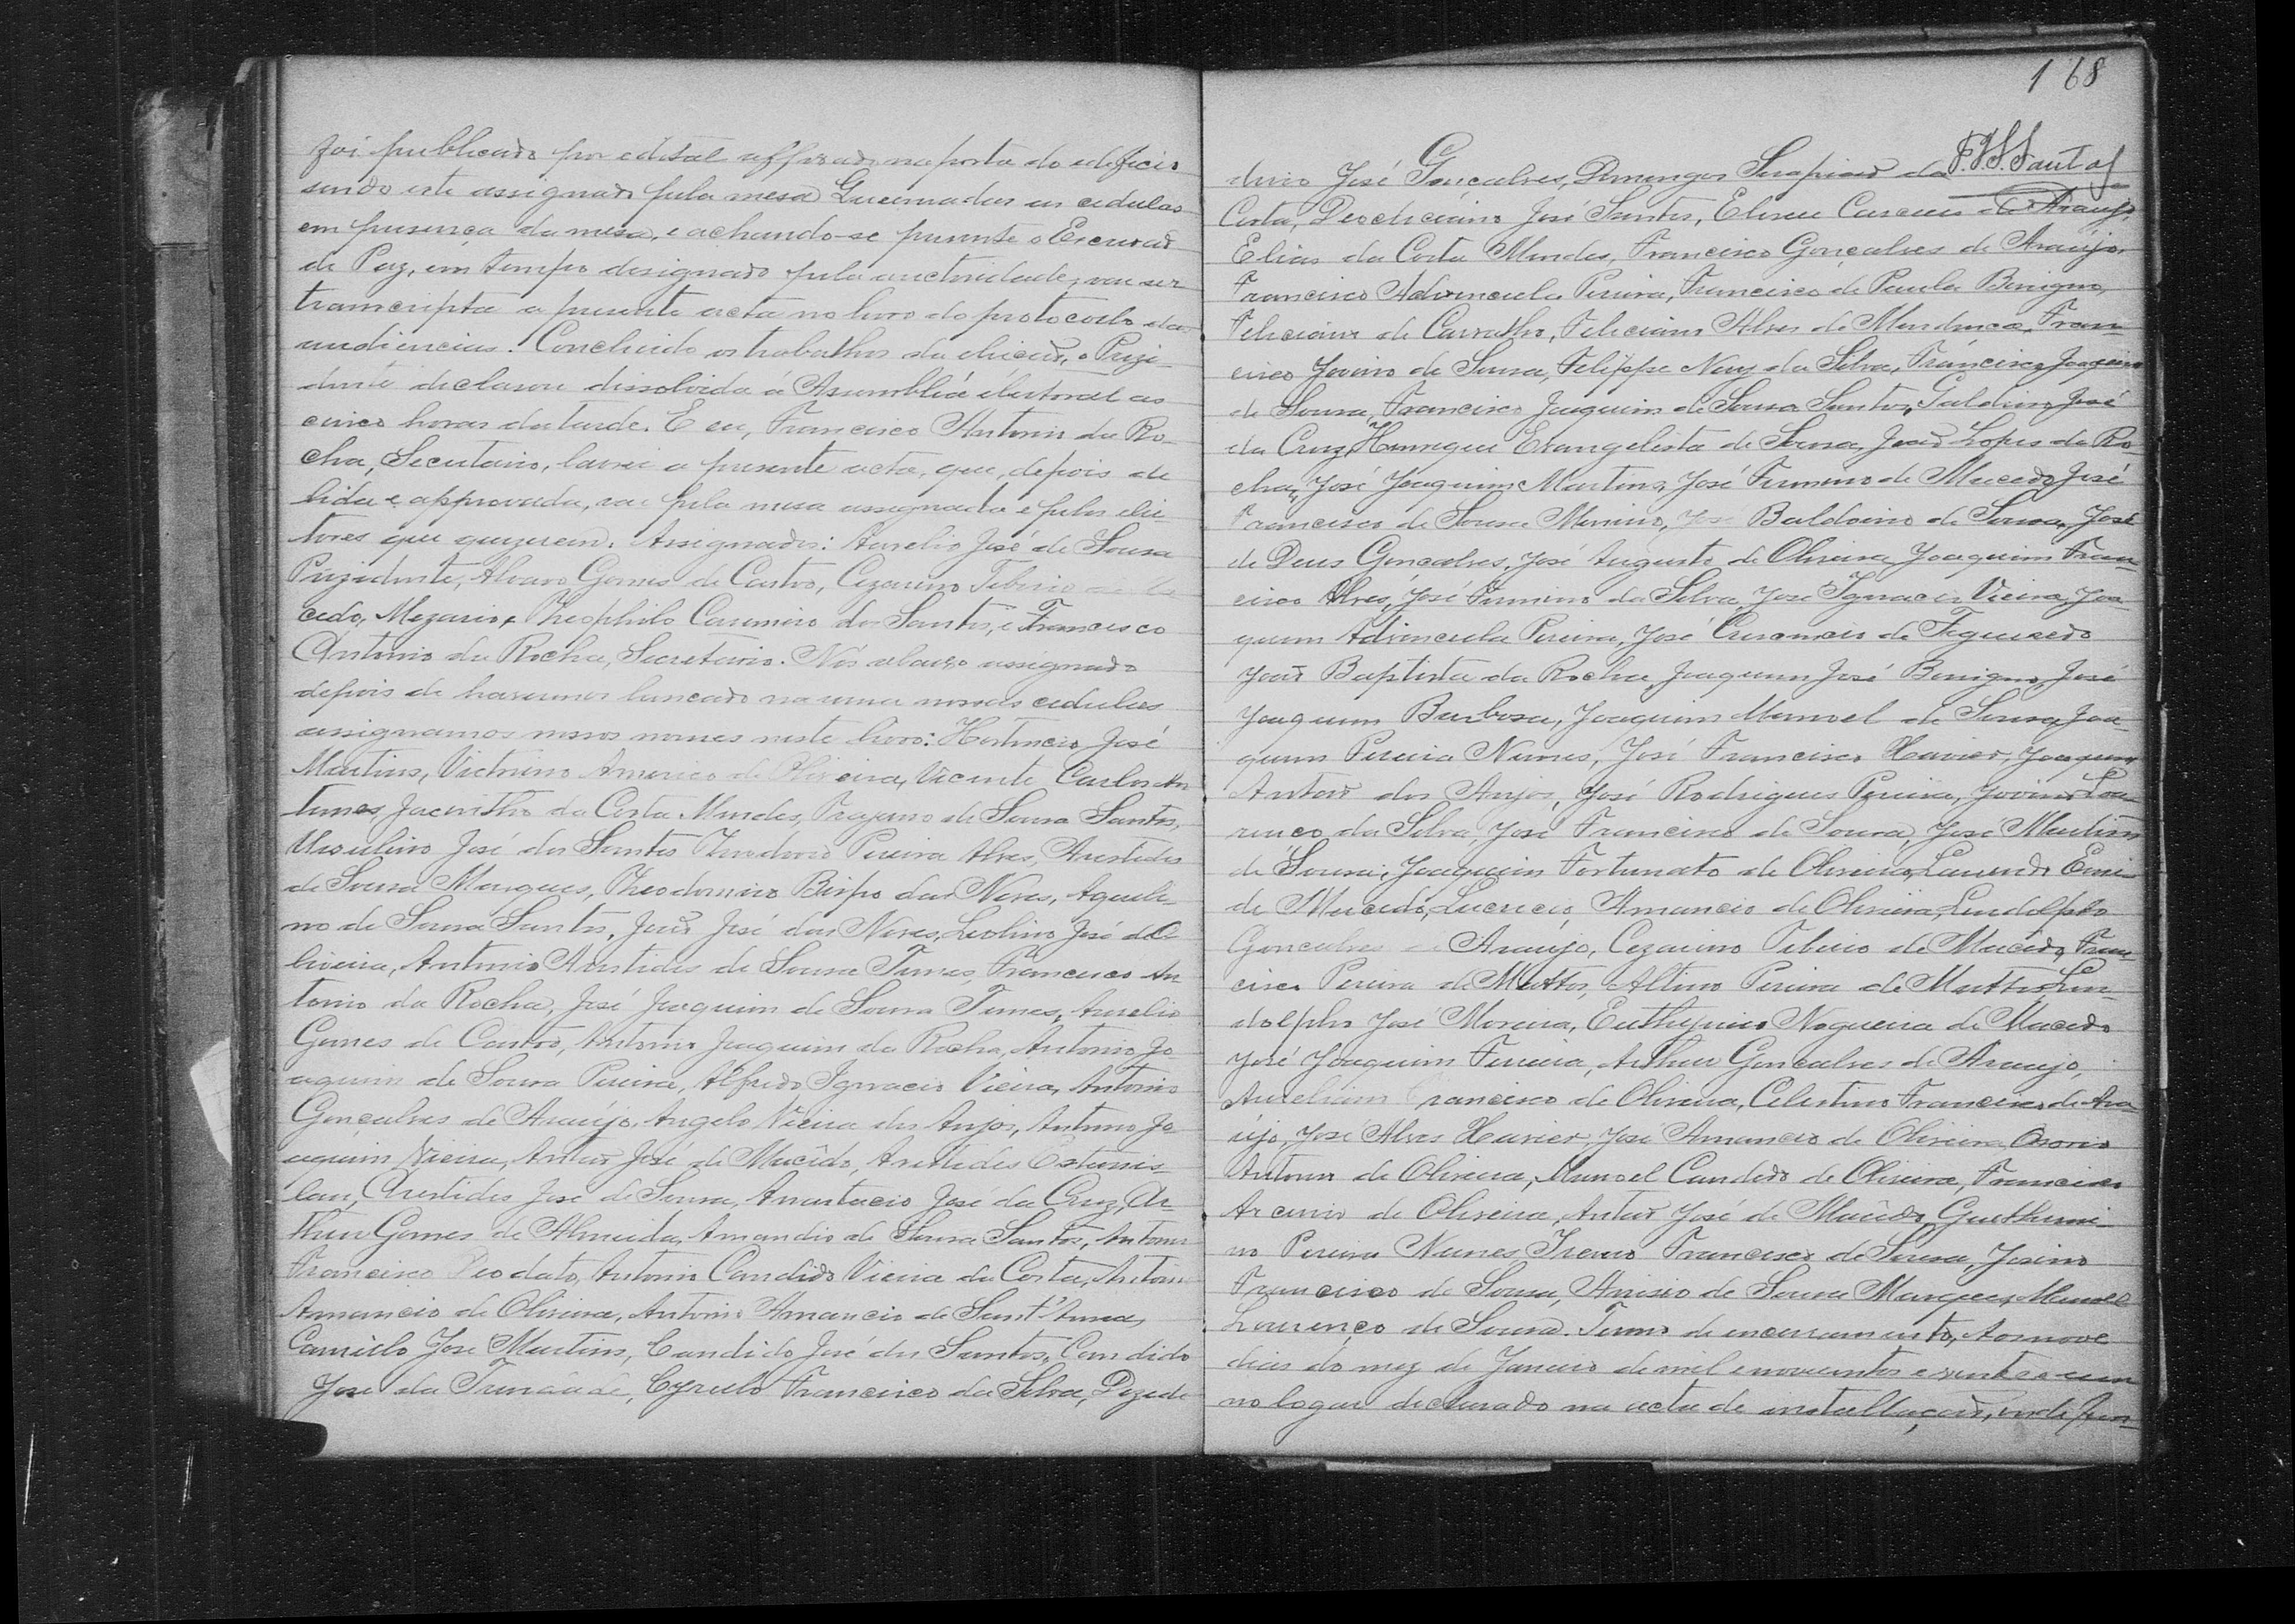 foi publicado por edital affixado na porta do edificio
sendo este assignado pela mesa as cedulas
em presença da mesa, e achando-se presente o Escrivão
de Paz, em tempo designado pela auctoridade, vai ser
transcripta a presente acta no livro do protocolo das
audiencias. Concluido os trabalhos da eleição, o Prizi-
dente declarou dissolvida á Assembléa eleitoral as
cinco horas da tarde. E eu, Francisco Antonio da Ro-
cha, Secretario, lavrei a presente acta, que, depois de
lida e approvada, vai pela mesa assignada e pelos elei-
tores que quizerem. Assignados: Aurelio José de Sousa
Prizidente, Alvaro Gomes de Castro, Cezarino Tiburio de Ma
cedo, Mezario, Theophilo Casemiro dos Santos, e Francisco
Antonio da Rocha, Secretario. Nós abaixo assignado
depois de havermos lancado na urna nossas cedulas
assignamos nossos nomes neste livro: Hortencio José
Martins, Victorino Americo de Oliveira, Vicente Carlos An
tunes, Jacintho da Costa Mendes, Trajano de Sousa Santos,
Ursulino José dos Santos Theodoro Pereira Alves, Arestides
de Sousa Marques, Theodomiro Bispo das Neves, Aqueli-
no de Sousa Santos, João José das Neves, Leolino José de O-
liveira, Antonio Arestides de Sousa Tunes, Francisco An-
tonio da Rocha, José Joaquim de Sousa Tunes, Aurelio
Gomes de Castro, Antonio Joaquim da Rocha, Antonio Jo-
aquim de Sousa Pereira, Alfredo Ignacio Vieira, Antonio
Gonçalves de Araújo, Angelo Vieira dos Anjos, Antonio Jo-
aquim Vieira, Antão José de Macêdo, Arestides Estanis-
lau, Arestides José de Sousa, Anastacio José da Cruz, Ar-
thur Gomes de Almeida, Amandio de Sousa Santos, Antonio
Francisco Deodato, Antonio Candido Vieira da Costa, Antonio
Amancio de Oliveira, Antonio Amancio de Sant'Anna,
Camillo José Martins, Candido José dos Santos, Candido
José da Trindade, Cyrillo Francisco da Silva, Dezede
168
F.V.S. Santos
derio José Gonçalves, Domingos Serapião da
Costa, Deocliciano José Santos, Eliseu de Araujo,
Elias da Costa Mendes, Francisco Gonçalves de Araújo,
Francisco Advincula Pereira, Francisco de Paula Benigno,
Feliciano de Carvalho, Feliciano Alves de Mendonça, Fran-
cisco Jovino de Sousa, Felippe Nery da Silva, Francisco Joaquim
de Sousa, Francisco Joaquim de Sousa Santos, Galdino José
da Cruz, Henrique Evangelista de Sousa, João Lopes da Ro-
cha, José Joaquim Martins, José Firmino de Macedo, José
Francisco de Sousa Menino, José Baldoino de Sousa, José
de Deus Gonçalves, José Augusto de Oliveira, Joaquim Fran-
cisco Alves, José Firmino da Silva, José Ignacio Vieira, Joa-
quim Advincula Pereira, José de Figueredo
João Baptista da Rocha, Joaquim José Benigno, José
Joaquim Barbosa, Joaquim Manoel de Sousa, Joa-
quim Pereira Nunes, José Francisco Xavier, Joaquim
Antonio dos Anjos, José Rodrigues Pereira, Jovino Lou-
renço da Silva, José Francisco de Sousa, José Martins
de Sousa, Joaquim Fortunato de Oliveira,
de Macedo, Lucrecio Amancio de Oliveira, Lindolpho
Goncalves de Araujo, Cezarino Tiburio de Macêdo, Fran-
cisco Pereira de Mattos, Altino Pereira de Mattos, Lin-
dolpho José Moreira, Euthymio Nogueira de Macedo
José Joaquim Ferreira, Arthur Goncalves de Araujo,
Aureliano Francisco de Oliveira, Celestino Francisco de Ara
újo, José Alves Xavier, José Amancio de Oliveira, Osorio
Antonio de Oliveira, Manoel Candido de Oliveira, Francisco
Arcenio de Oliveira, Antão José de Macêdo,
no Pereira Nunes, Ireneo Francisco de Sousa, Josino
Francisco de Sousa, Anisio de Sousa Marques, Manoel
Lourenço de Sousa. Termo de encerramento, Aos nove
dias do mez de Janeiro de mil e novecentos e vinte e um
no logar declarado na acta de installação,